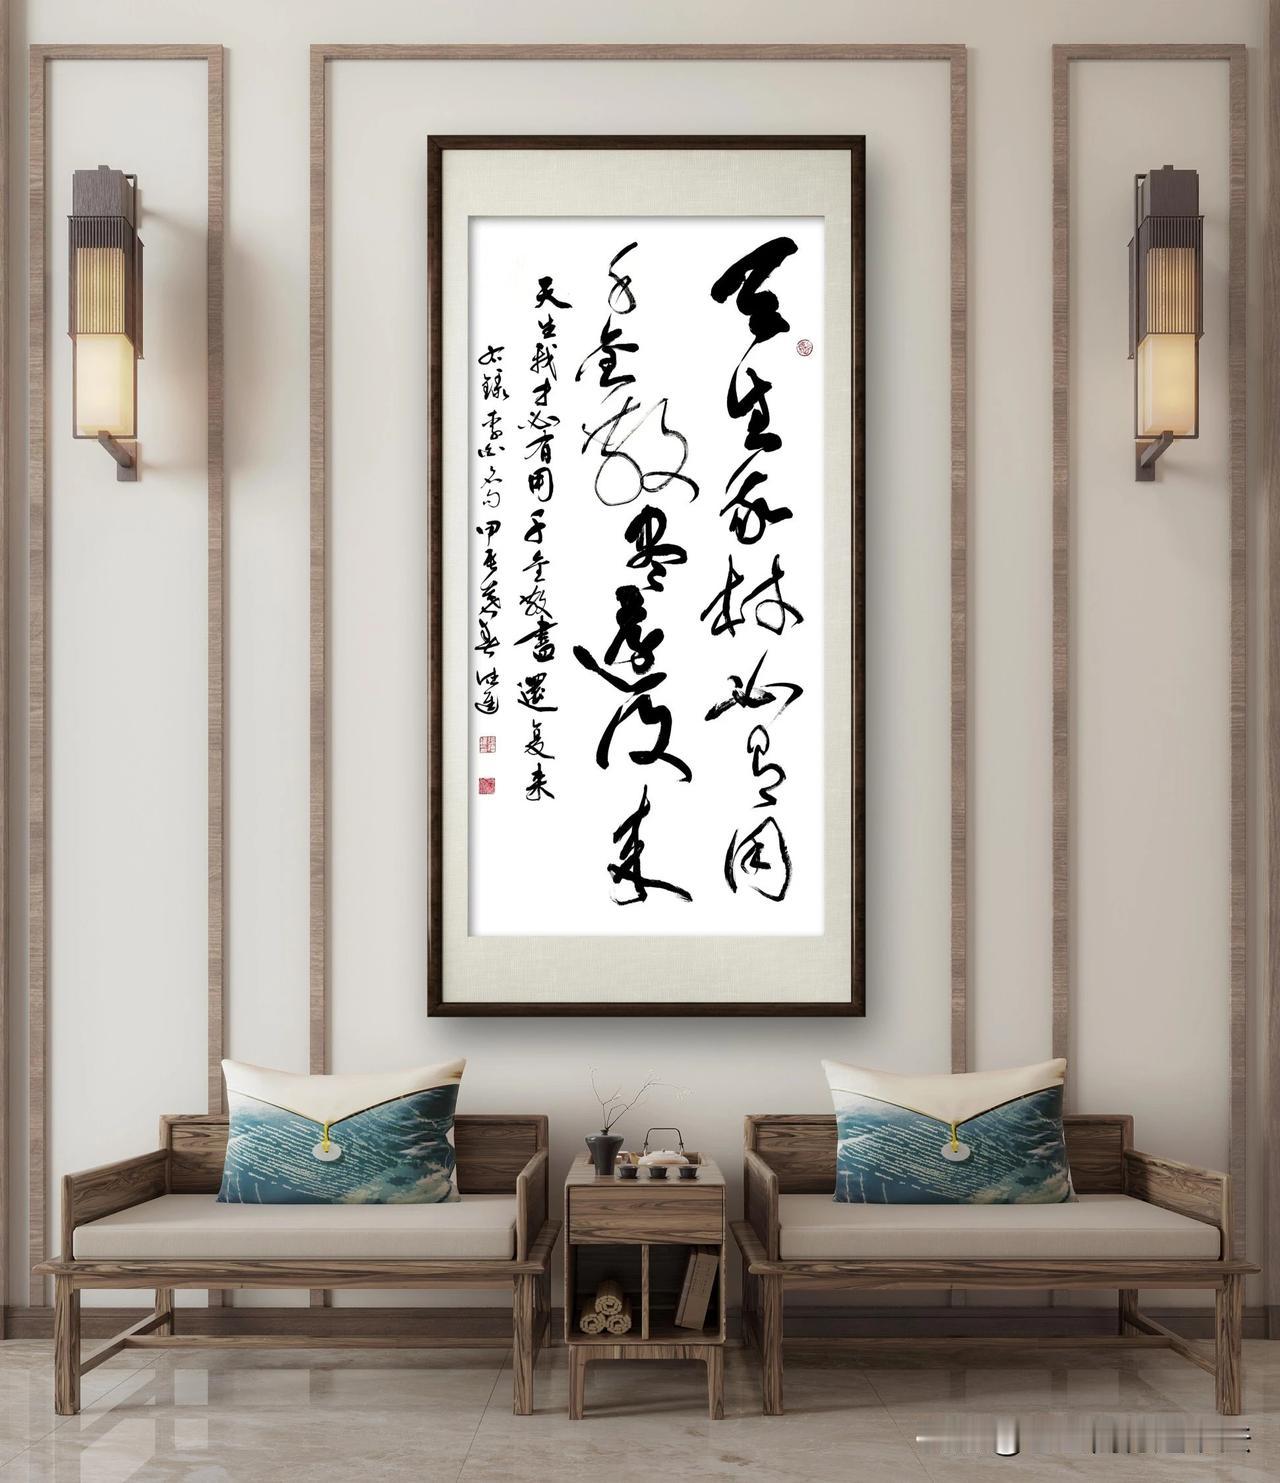 天生我材必有用
千金散尽还复来
天生我才必有用千金散盡還复来
右録李白名句甲辰暮春